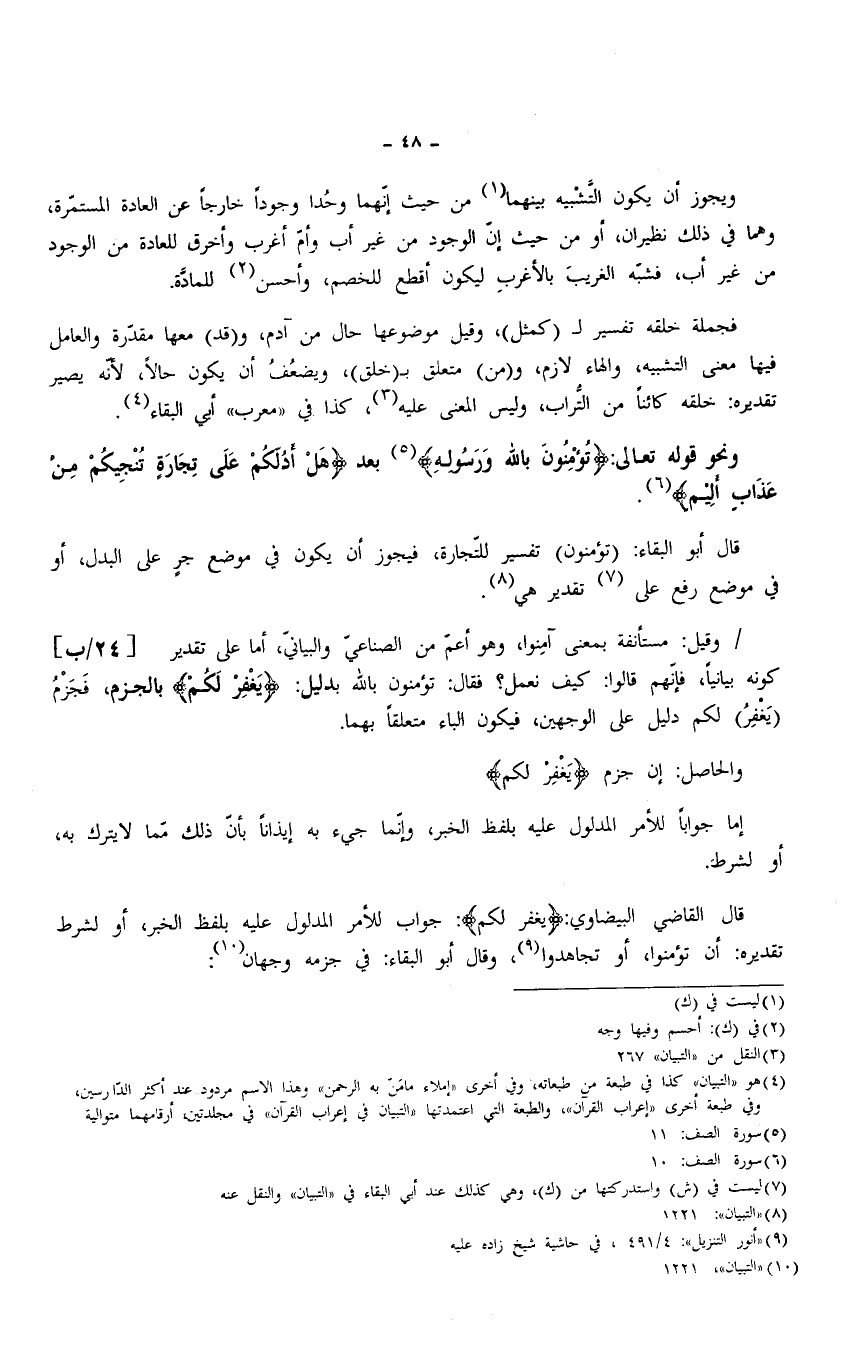 - ٤٨ -
ويجوز أن يكون التَّشبيه بينهما(١) من حيث إنّهما وحُدا وجوداً خارجاً عن العادة المستمّرة،
وهما في ذلك نظيران، أو من حيث إنّ الوجود من غير أب وأمّ أغرب وأخرق للعادة من الوجود
من غير أب، فشبّه الغريبَ بالأغربِ ليكون أقطع للخصم، وأحسن(٢) للمادَّة.
فجملة خلقه تفسير لـ (كمثل)، وقيل موضوعها حال من آدم، و(قد) معها مقدّرة والعامل
فيها معنى التشبيه، والهاء لازم، و(من) متعلق بـ(خلق)، ويضعُفُ أن يكون حالاً، لأنّه يصير
تقديره: خلقه كائناً من التُّراب، وليس المعنى عليه(٣)، كذا في «معرب» أبي البقاء(٤).
ونحو قوله تعالى:﴿تُؤمِنُونَ بالله وَرَسُولهِ﴾(٥) بعد ﴿هَلْ أَدُلّكُمْ عَلَى تِجارَةٍ تُنْجيكُمْ مِنْ
عَذَابٍ أَلِيْم﴾(٦).
قال أبو البقاء: (تؤمنون) تفسير للتّجارة، فيجوز أن يكون في موضع جرٍ على البدل، أو
في موضع رفع على (٧) تقدير هي(٨).
/ وقيل: مستأنفة بمعنى آمِنوا، وهو أعمّ من الصناعيّ والبيانيّ، أما على تقدير [٢٤/ب]
كونه بيانياً، فإنّهم قالوا: كيف نعمل؟ فقال: تؤمنون بالله بدليل: ﴿يَغْفِرْ لَكُمْ﴾ بالجزم، فَجَزْمُ
(يَغْفِرُ) لكم دليل على الوجهين، فيكون الباء متعلقاً بهما.
والحاصل: إن جزم ﴿يَغْفِرْ لكم﴾
إما جواباً للأمر المدلول عليه بلفظ الخبر، وإنّما جيء به إيذاناً بأنّ ذلك مّما لايترك به،
أو لشرط.
قال القاضي البيضاوي:﴿يغفر لكم﴾: جواب للأمر المدلول عليه بلفظ الخبر، أو لشرط
تقديره: أن تؤمنوا، أو تجاهدوا(٩)، وقال أبو البقاء: في جزمه وجهان(١٠):
(١)ليست في (ك)
(٢)في (ك): أحسم وفيها وجه
(٣)النقل من «التبيان» ٢٦٧
(٤)هو «التبيان» كذا في طبعة من طبعاته، وفي أخرى «إملاء مامَنّ به الرحمن» وهذا الاسم مردود عند أكثر الدّارسين،
وفي طبعة أخرى «إعراب القرآن»، والطبعة التي اعتمدتها «التبيان في إعراب القرآن» في مجلدتين، أرقامهما متوالية
(٥)سورة الصف: ١١
(٦)سورة الصف: ١٠
(٧)ليست في (ش) واستدركتها من (ك)، وهي كذلك عند أبي البقاء في «التبيان» والنقل عنه
(٨)«التبيان»: ١٢٢١
(٩)«أنور التنزيل»: ٤٩١/٤ ، في حاشية شيخ زاده عليه
(١٠)«التبيان»، ١٢٢١